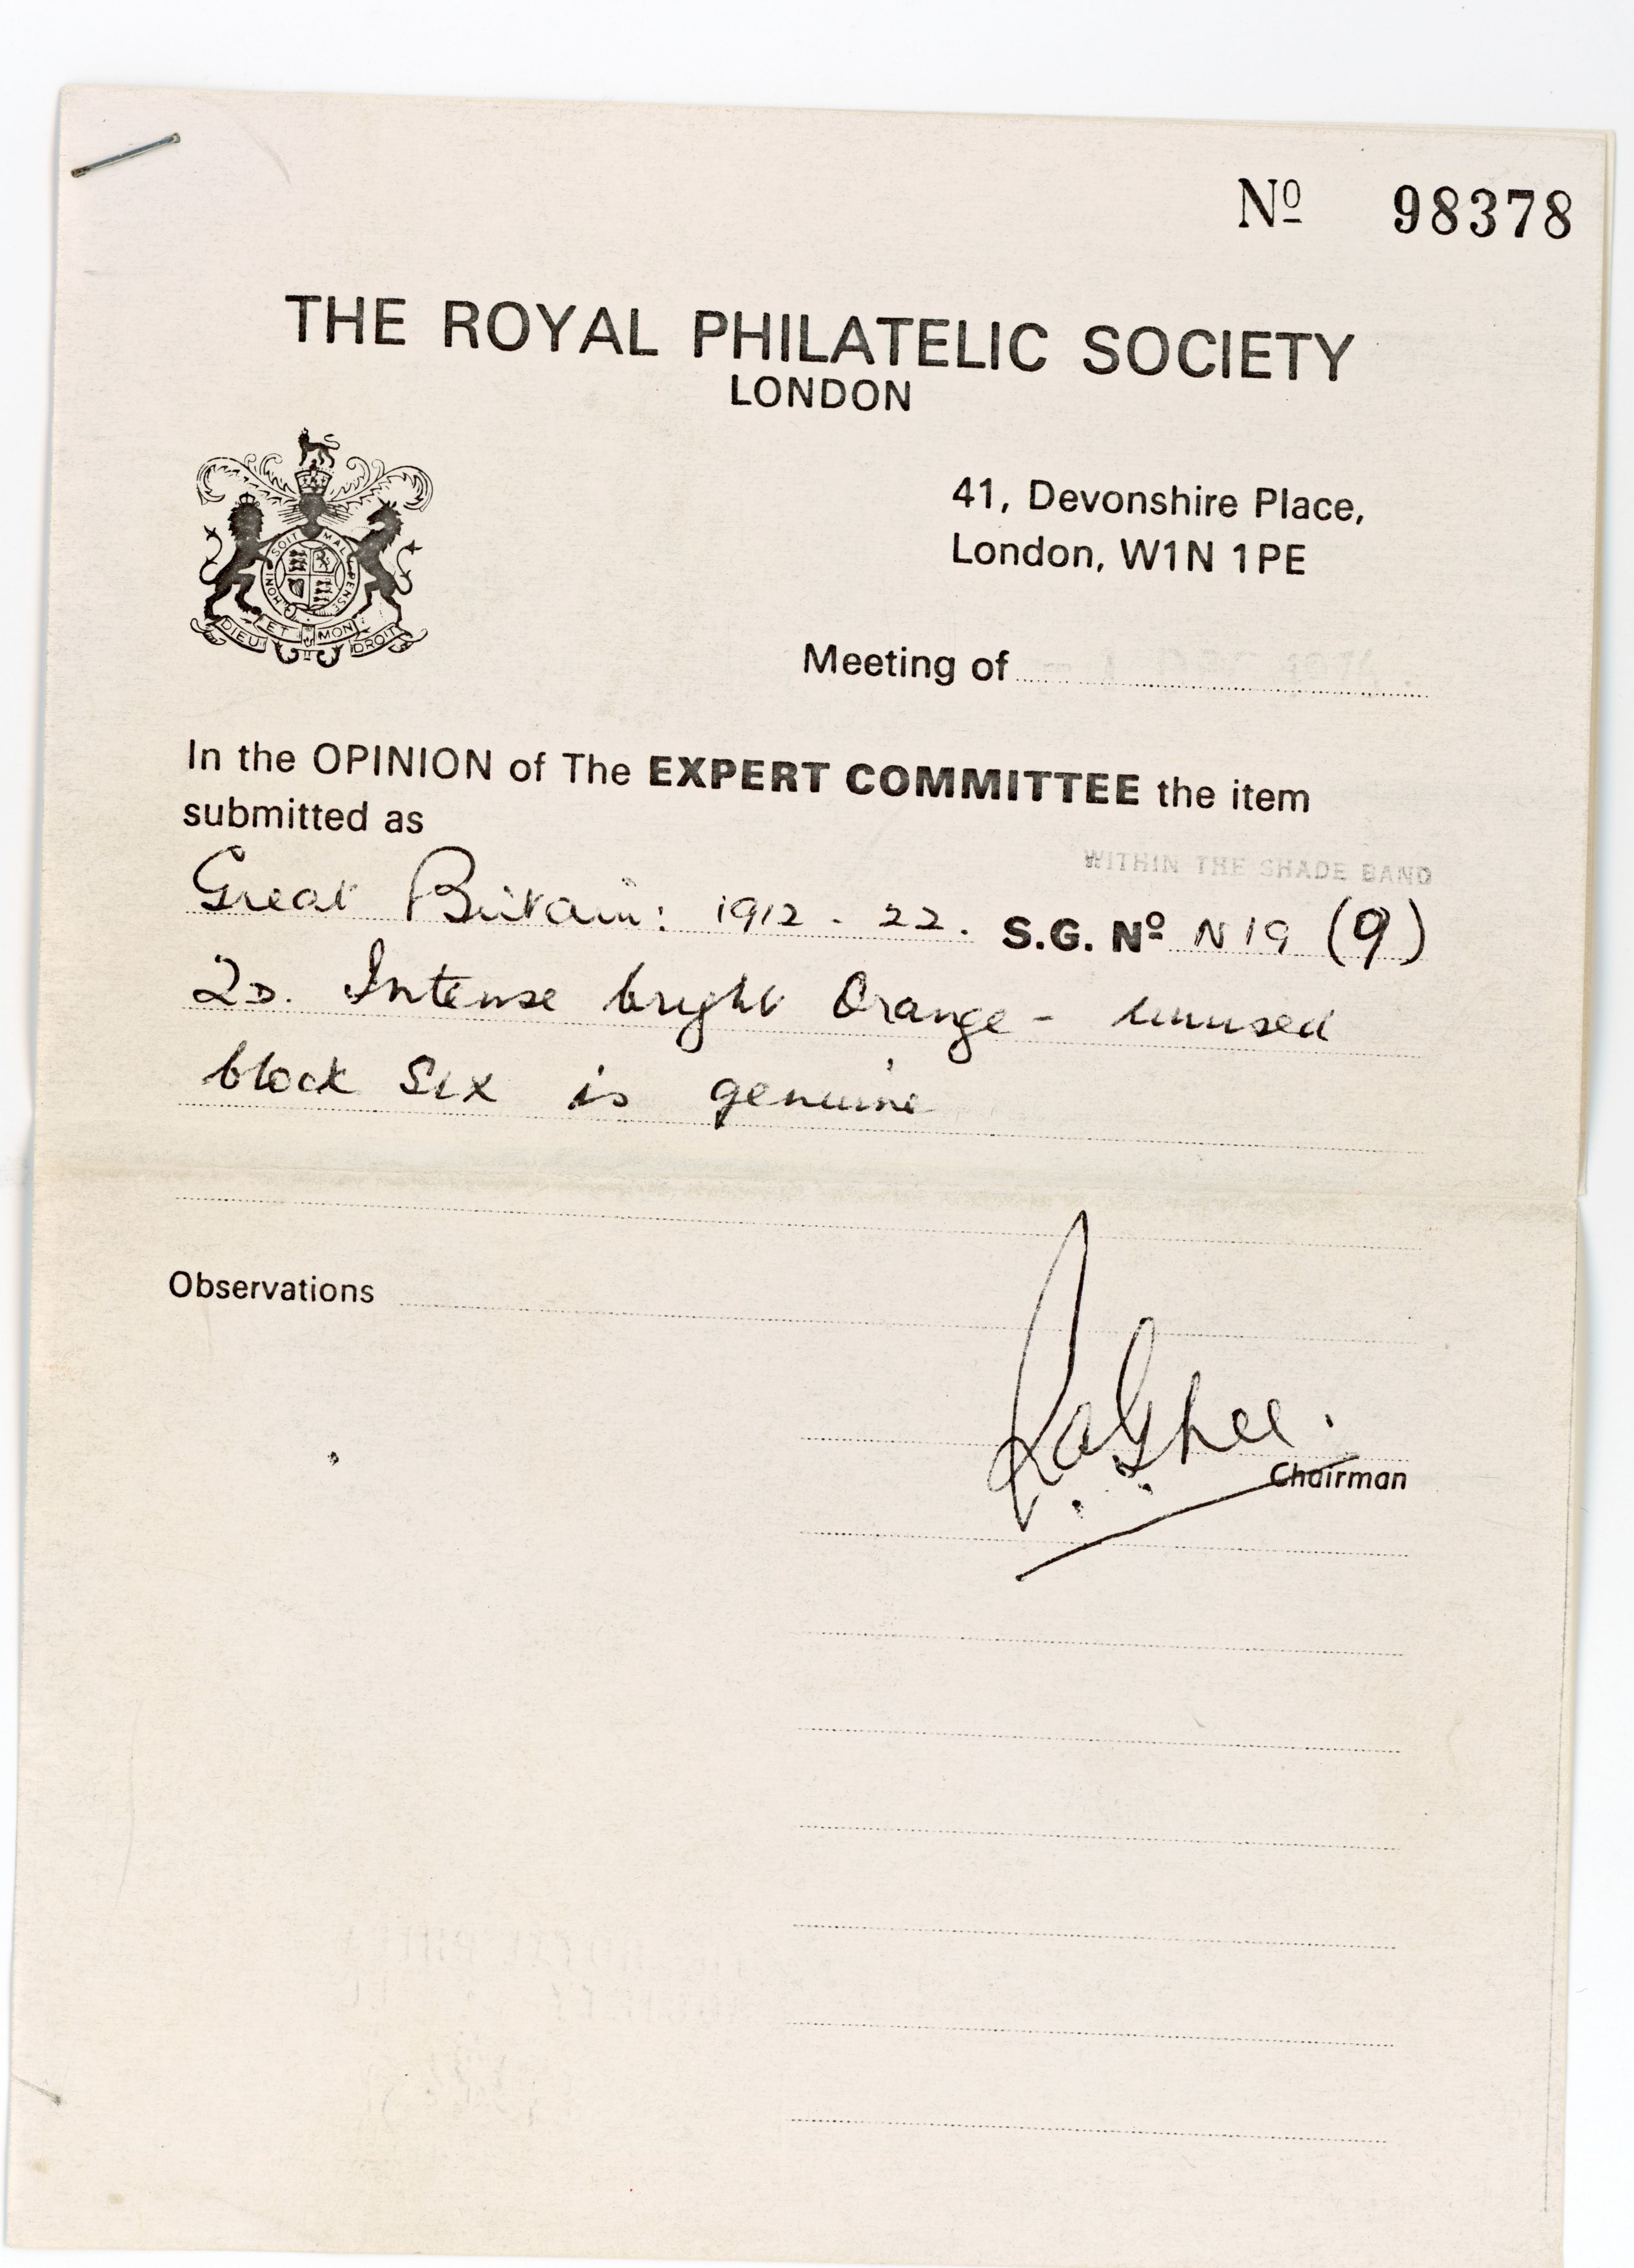 Nº 98378
THE ROYAL PHILATELIC SOCIETY
LONDON
HONI SOIT MAL PENSE
DIEU ET MON DROIT
41, Devonshire Place,
London, W1N 1PE
Meeting of - 1 DEC 1976
In the OPINION of The EXPERT COMMITTEE the item
submitted as
WITHIN THE SHADE BAND
Great Britain: 1912 - 22. S.G. Nº N19 (9)
2D. Intense bright Orange - unused
block Six is genuine
Observations
Chairman